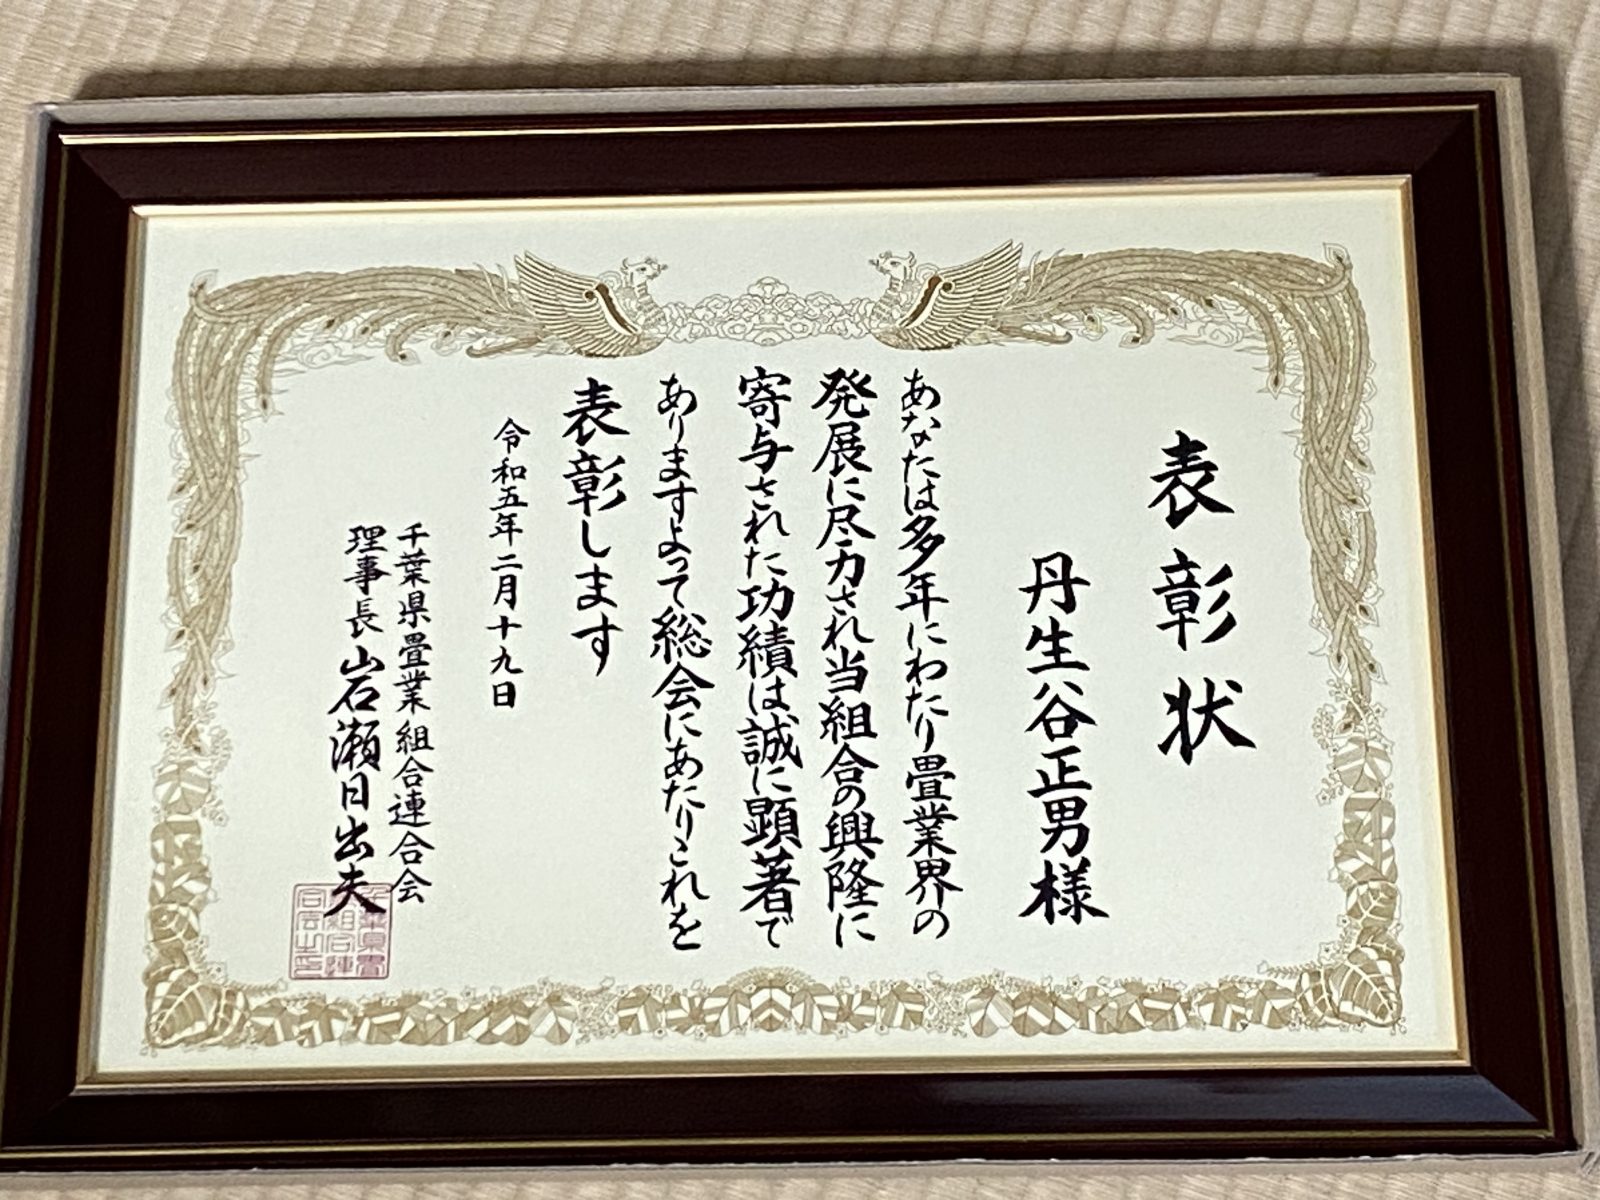 表彰状
丹生谷正男様
あなたは多年にわたり畳業界の
発展に尽力され当組合の興隆に
寄与された功績は誠に顕著で
ありますよって総会にあたりこれを
表彰します
令和五年二月十九日
千葉県畳業組合連合会
理事長 岩瀬日出夫
千葉県畳
業組合連
合会之印